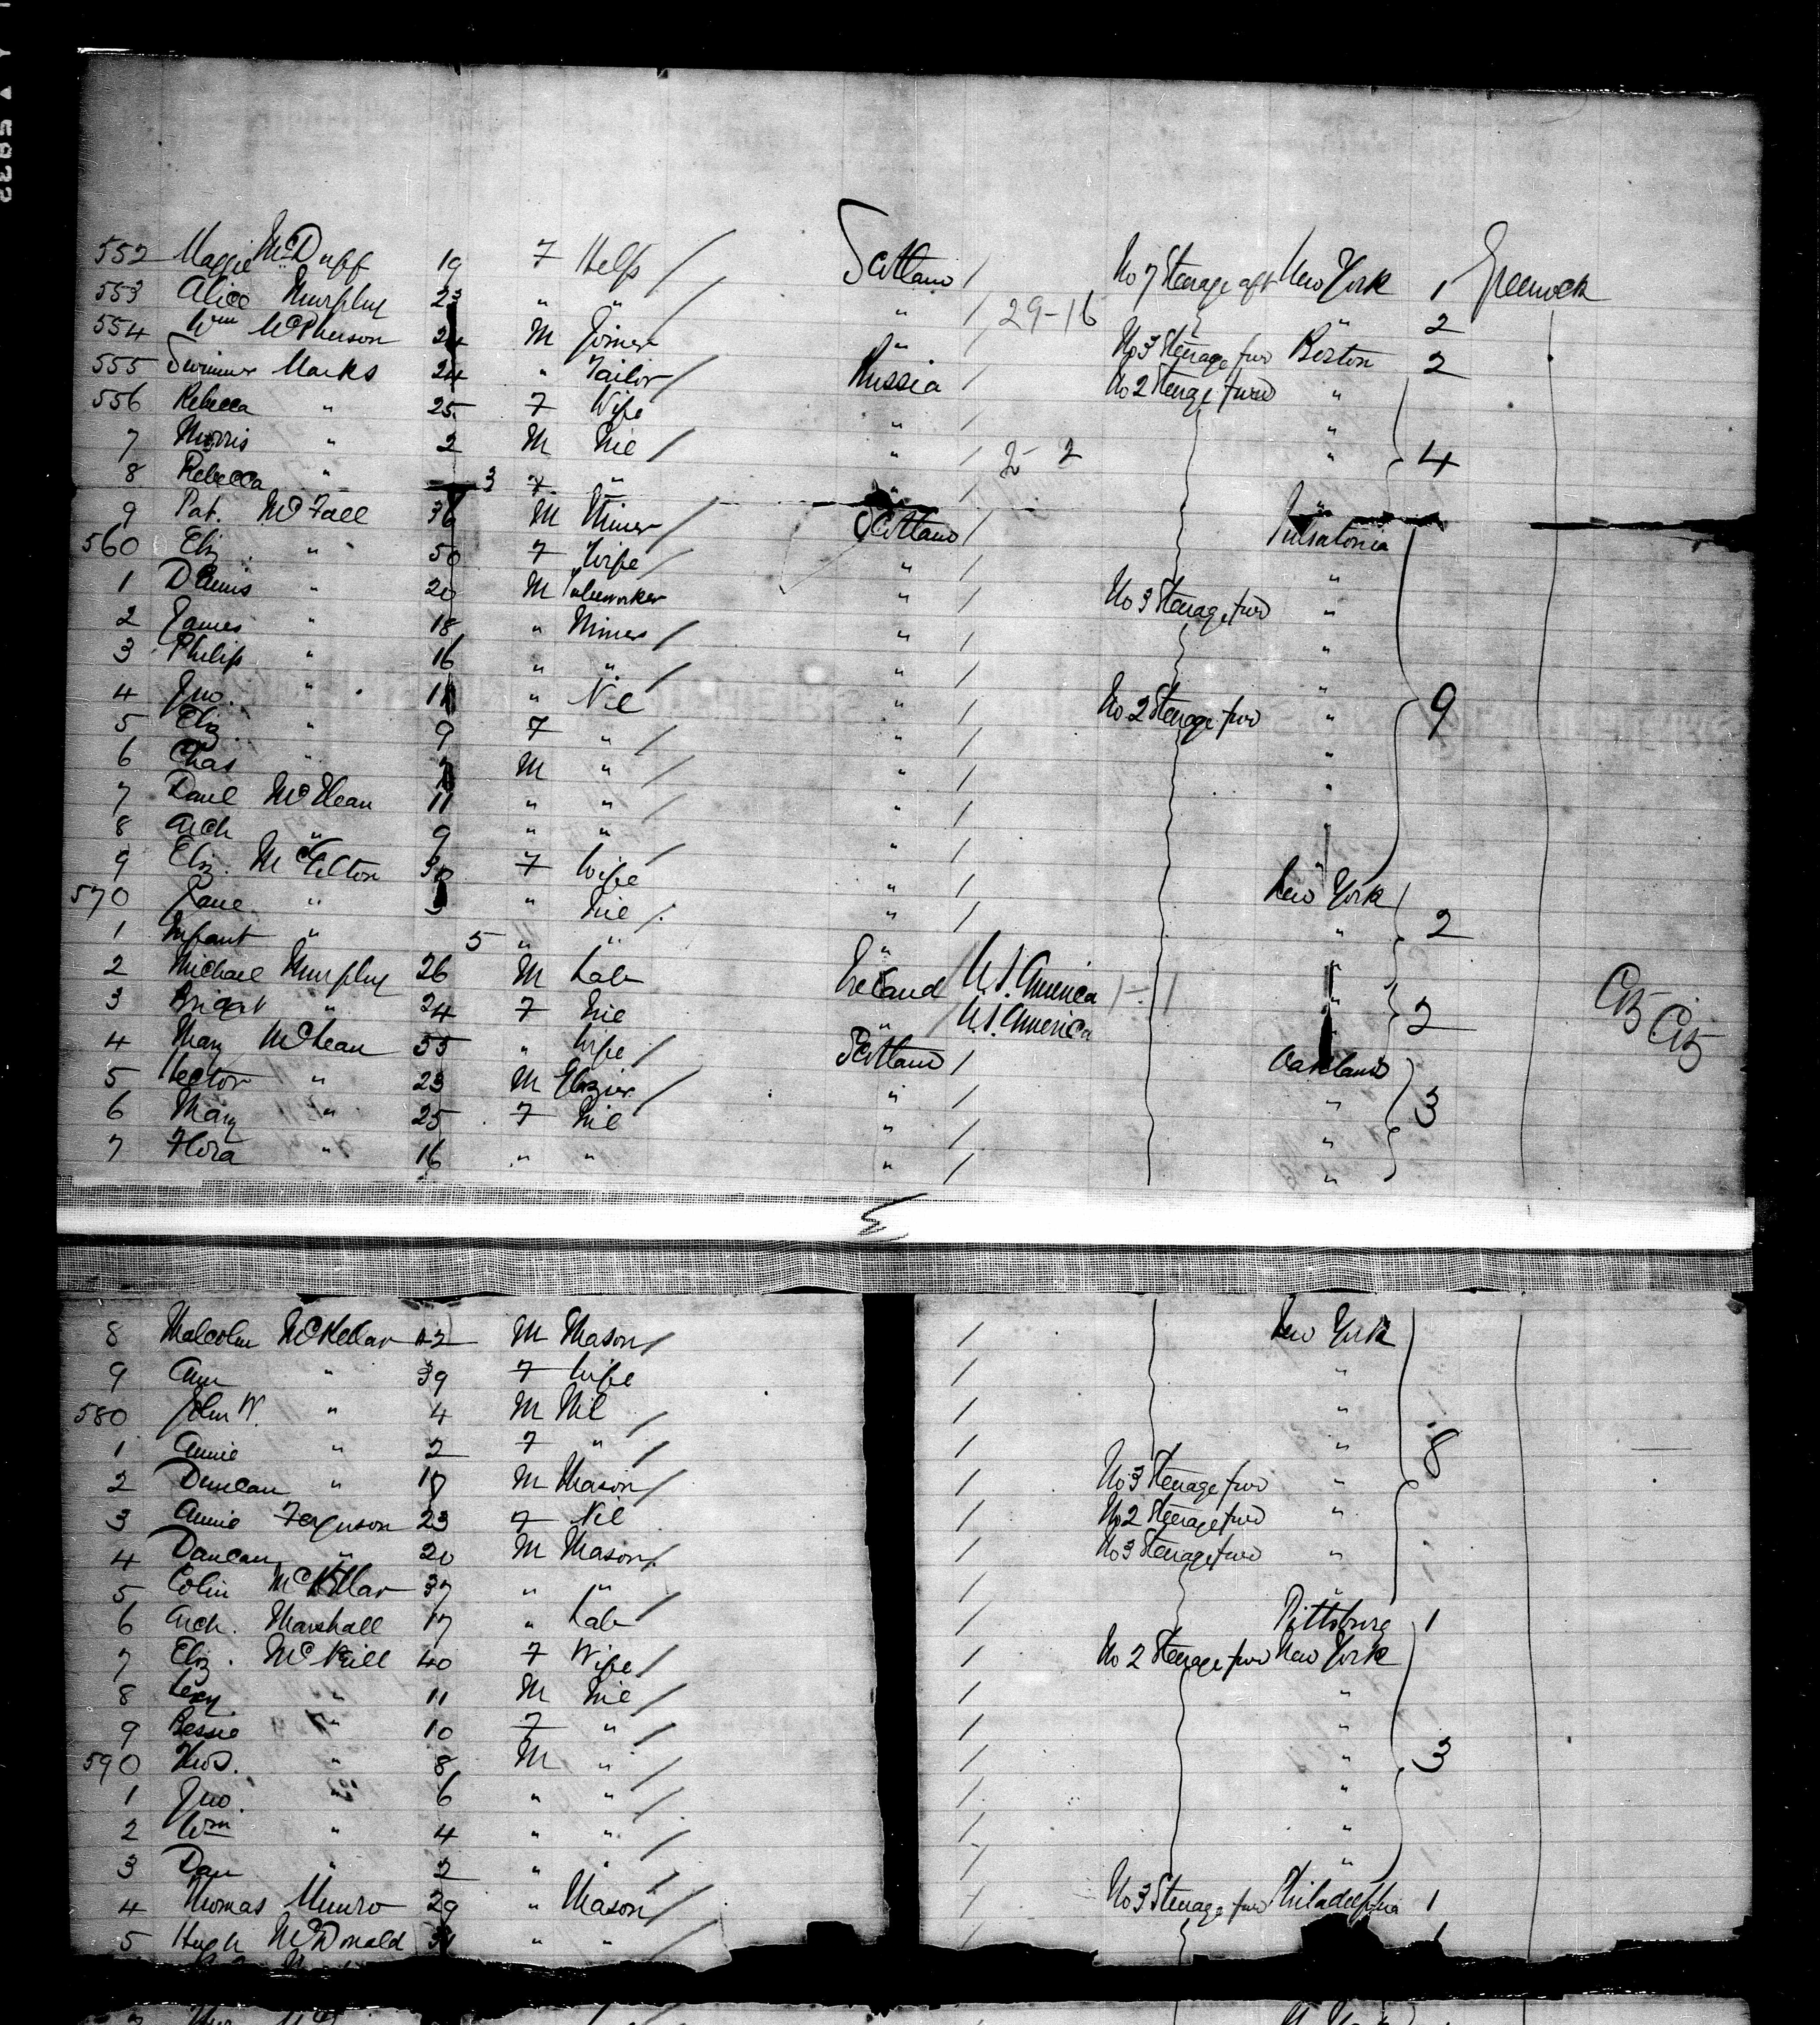 552 Maggie McDuff 19 F Help / Scotland / No 7 Steerage aft New York 1 Greenock
553 Alice Murphy 23 " " / " / 29-16 " 2
554 Wm McPherson 24 M Joiner " / No 3 Steerage fwd Boston 2
555 Marks 24 " Tailor / Russia / No 2 Steerage fwd "
556 Rebecca " 25 F Wife " "
7 Morris " 2 M Nil / " / 2 " 4
8 Rebecca " 3 F " " / "
9 Pat. McFall 36 M Miner / Scotland /
560 Eliz " 50 F Wife / " / "
1 Dennis " 20 M Tubeworker " / No 3 Steerage fwd "
2 James " 18 " Miner / " / "
3 Philip " 16 " " / " / "
4 Jno. " 11 " Nil " / No 2 Steerage fwd " 9
5 Eliz " 9 F " / " / "
6 Chas " M " / " / "
7 Danl 11 " " / " / "
8 Arch " 9 " " " / "
9 Eliz. 30 F Wife / " / New York
570 Jane " " Nil / " / " 2
1 Infant " 5 " " " "
2 Michael Murphy 26 M Lab Ireland / U.S. America 1-1 "
3 Bridget " 24 F Nil " / U.S. America " 2 Ctz Ctz
4 Mary McLean 55 " Wife / Scotland / Oakland
5 Hector " 23 M Glazier / " / " 3
6 Mary " 25 F Nil " / "
7 Flora " 16 " " " / "
8 Malcolm McKellar 42 M Mason / / New York
9 Ann " 39 F Wife / "
580 John W. " 4 M Nil / / "
1 Annie " 2 F " / / " 8
2 Duncan " 17 M Mason / / No 3 Steerage fwd "
3 Annie Ferguson 23 F Nil / No 2 Steerage fwd "
4 Duncan " 20 M Mason / / No 3 Steerage fwd "
5 Colin McKellar 37 " " / / "
6 Arch. Marshall 17 " Lab / / Pittsburg 1
7 Eliz. McNeill 40 F Wife / / No 2 Steerage fwd New York
8 " 11 M Nil / / "
9 Bessie " 10 F " / / "
590 Thos. " 8 M " / / " 3
1 Jno. " 6 " " / / "
2 Wm " 4 " " / / "
3 Dan " 2 " " / / "
4 Thomas Munro 29 " Mason / / No 3 Steerage fwd Philadelphia 1
5 Hugh McDonald " " / 1